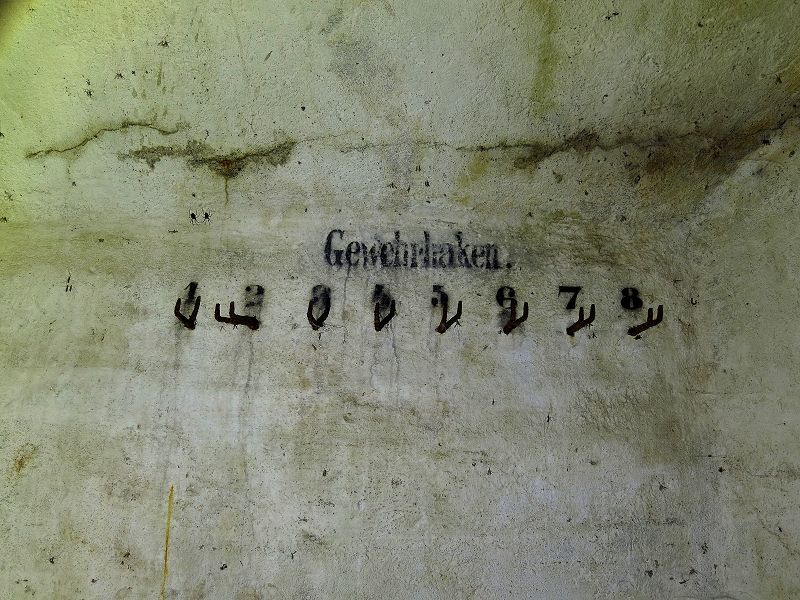 Gewehrhaken.
1 2 3 4 5 6 7 8